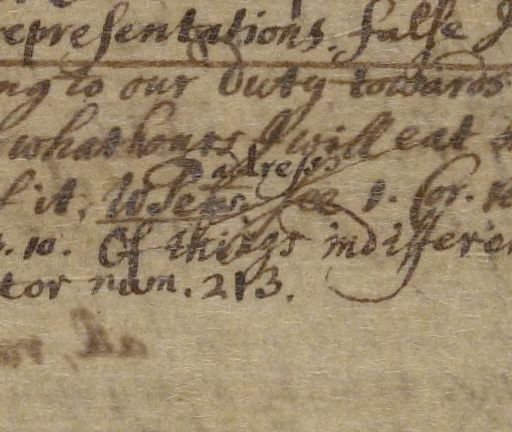 representations, false
ng to our Duty towards
what hours I will eat
address
f it, see 1. Cor. 10
10. Of things indifferen
tor num. 213.